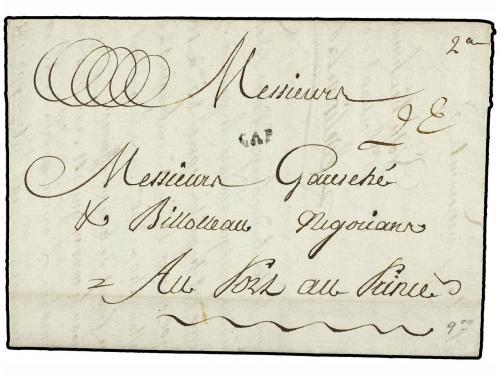 2a
Messieurs
CAP
Messieurs Gausché
& Billoteau Negocians
Au Port au Prince